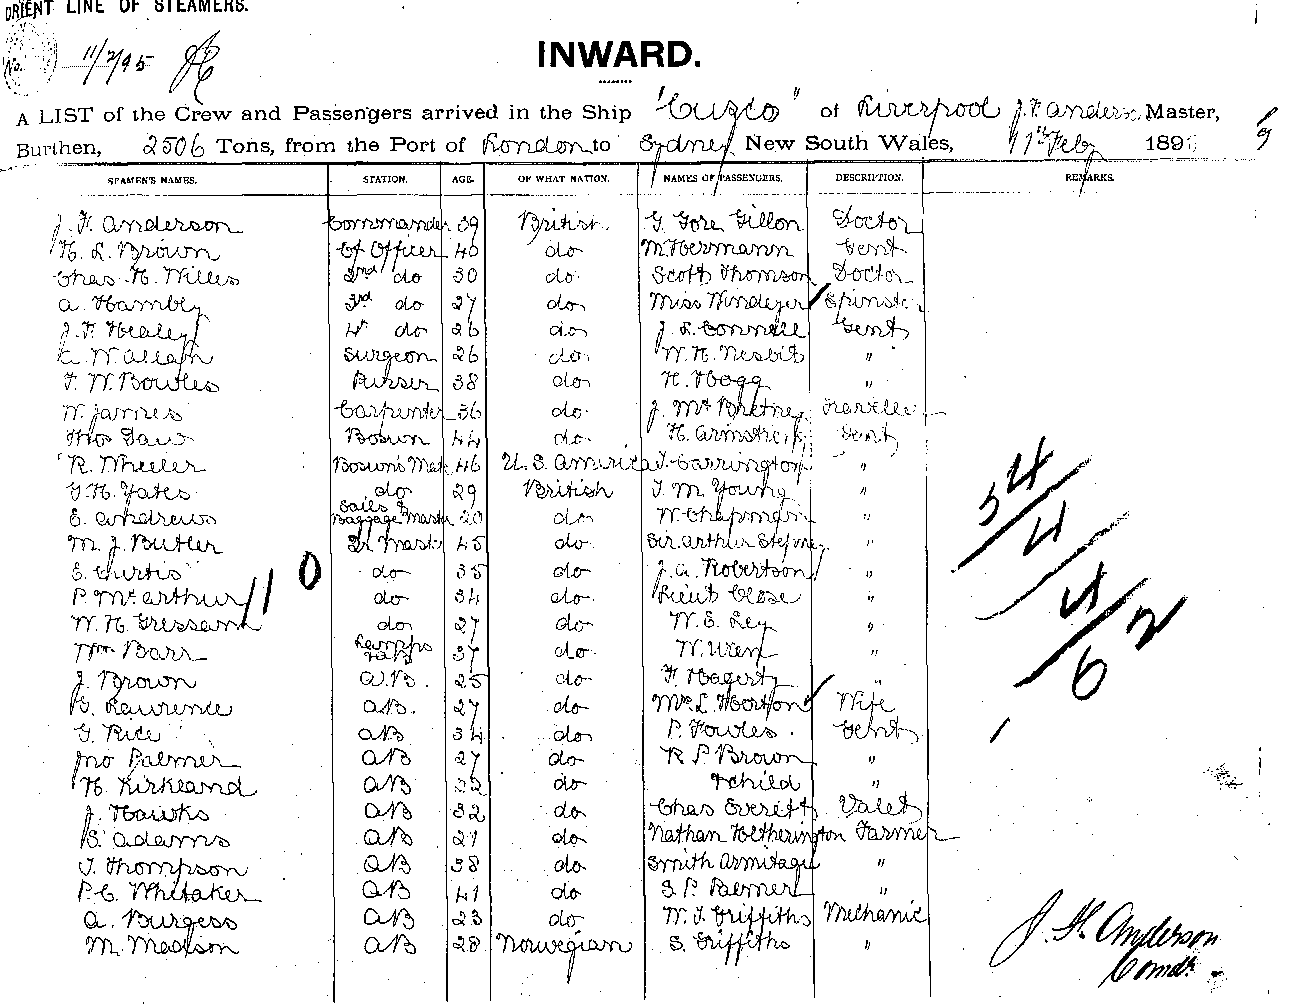 ORIENT LINE OF STEAMERS.
No. 11/2/95
INWARD.
A LIST of the Crew and Passengers arrived in the Ship "Cuzco" of Liverpool J. F. Anderson Master,
Burthen, 2506 Tons, from the Port of London to Sydney New South Wales, 11th Feby 189
SEAMEN'S NAMES. STATION. AGE. OF WHAT NATION. NAMES OF PASSENGERS. DESCRIPTION. REMARKS.
J. F. Anderson Commander 39 British G. Gore Gillon Doctor
H. L. Brown Cf Officer 40 do M Hermann Gent
Chas. H. Willes 2nd do 30 do Scott Thomson Doctor
A. Hambly 3rd do 27 do Miss Windeyer Spinstr
J. F. Healey 4th do 26 do J. L. Connell Gent
Surgeon 26 do W. H. Nesbit "
F. W. Bowles Purser 38 do H. Hogg "
W. James Carpenter 36 do J. Mc Bretney Traveller
Thos Daw Bosun 44 do H. Armstrong Gent
R. Wheeler Bosun's Mate 46 U. S. America J. Carrington "
G. H. Yates do 29 British J. M. Young "
E. Andrews Sails & Baggage Master 20 do W. Chapman "
M. J. Butler Qr Mastr 45 do Sir Arthur Stepney "
E. Curtis do 35 do J. A. Robertson "
P. McArthur do 34 do Lieut Close "
W. H. do 27 do W. E. Ley "
Wm Barr Lamps 37 do W. Wren "
J. Brown A.B. 25 do F. Hagerty "
G. Lawrence AB. 27 do Mrs L. Horton Wife
G. Rice AB 34 do P. Fowles. Gent
Jno Palmer AB 27 do R P Brown "
H. Kirkland AB 32 do + child "
J. Hawks AB 32 do Chas Everett Valet
G. Adams AB 21 do Nathan Hetherington Farmer
J. Thompson AB 38 do Smith Armitage "
P. C. Whitaker AB 41 do S. P. Palmer "
A. Burgess AB 23 do W. J. Griffiths Mechanic
M. Madson AB 28 Norwegian S. Griffiths "
110
54/4/4/62
J. F. Anderson
Comdr